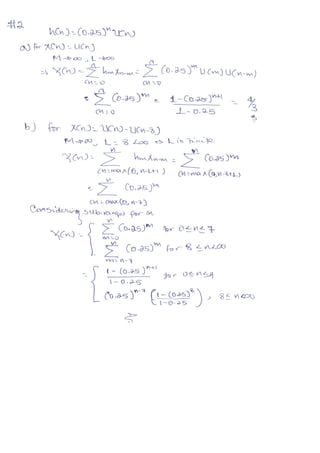 #2
h(n) = (0.25)^n U(n)
a) for X(n) = U(n)
M→∞, L→∞
⇒ Y(n) = Σ_{m=0}^{n} h_m x_{n-m} = Σ_{m=0}^{n} (0.25)^m U(m) U(n-m)
= Σ_{m=0}^{n} (0.25)^m = 1-(0.25)^{n+1} / 1-0.25 = 4/3
b) for X(n) = U(n) - U(n-8)
M→∞, L = 8 <∞ ⇒ L is finite
Y(n) = Σ_{m=max(0, n-L+1)}^{n} h_m x_{n-m} = Σ_{m=max(0, n-L+1)}^{n} (0.25)^m
= Σ_{m=max(0, n-7)}^{n} (0.25)^m
Considering subranges for n
Y(n) = { Σ_{m=0}^{n} (0.25)^m for 0≤n≤7
Σ_{m=n-7}^{n} (0.25)^m for 8≤n≤∞
= { 1-(0.25)^{n+1} / 1-0.25 for 0≤n≤7
(0.25)^{n-7} (1-(0.25)^8 / 1-0.25), 8≤n≤∞